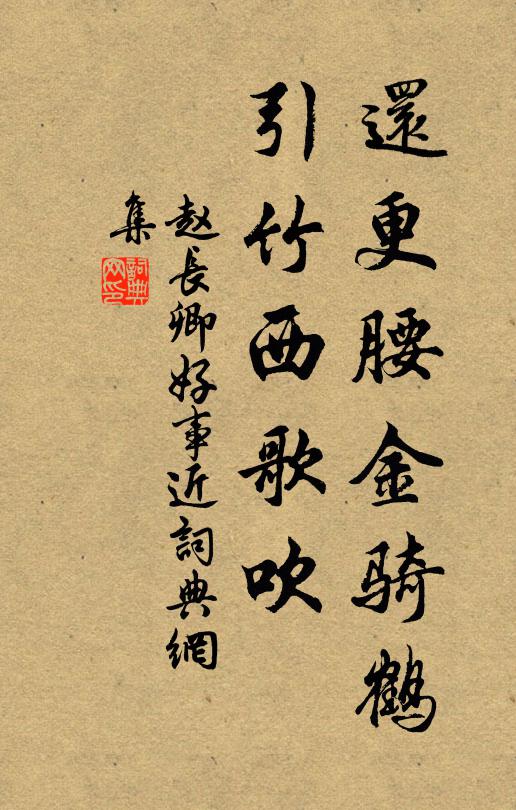 還更腰金騎鶴
引竹西歌吹
赵長卿好事近詞典網
集
詞典
网印